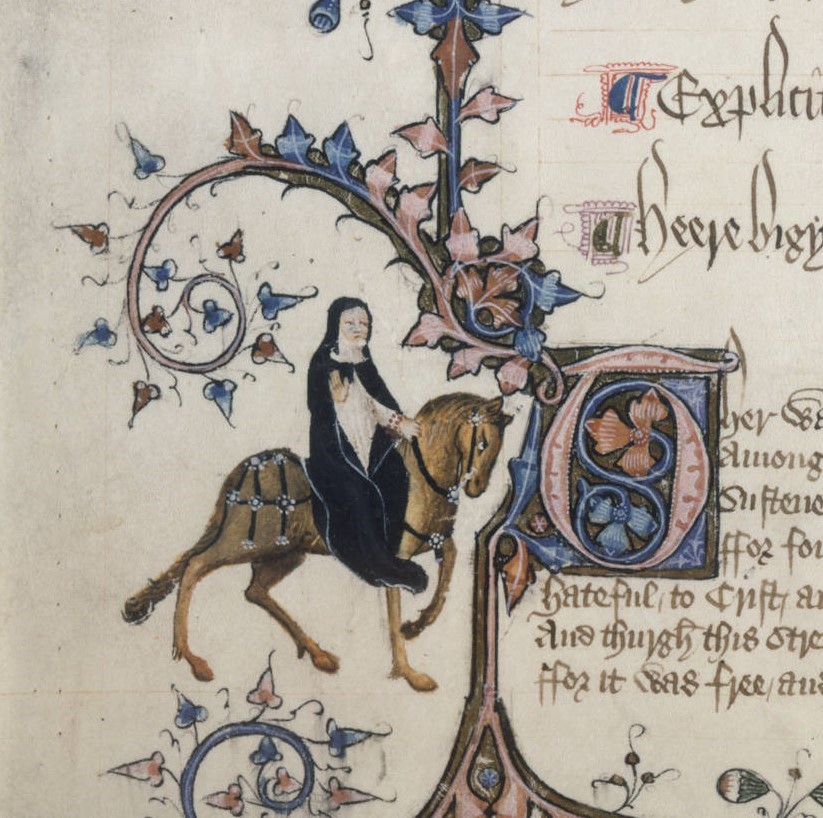 ¶ Explicit
¶ Heere bigy
Ther wa
Among
Sustene
ffor fou
hateful / to Crist / an
And thurgh this Stre
ffor it was free / and